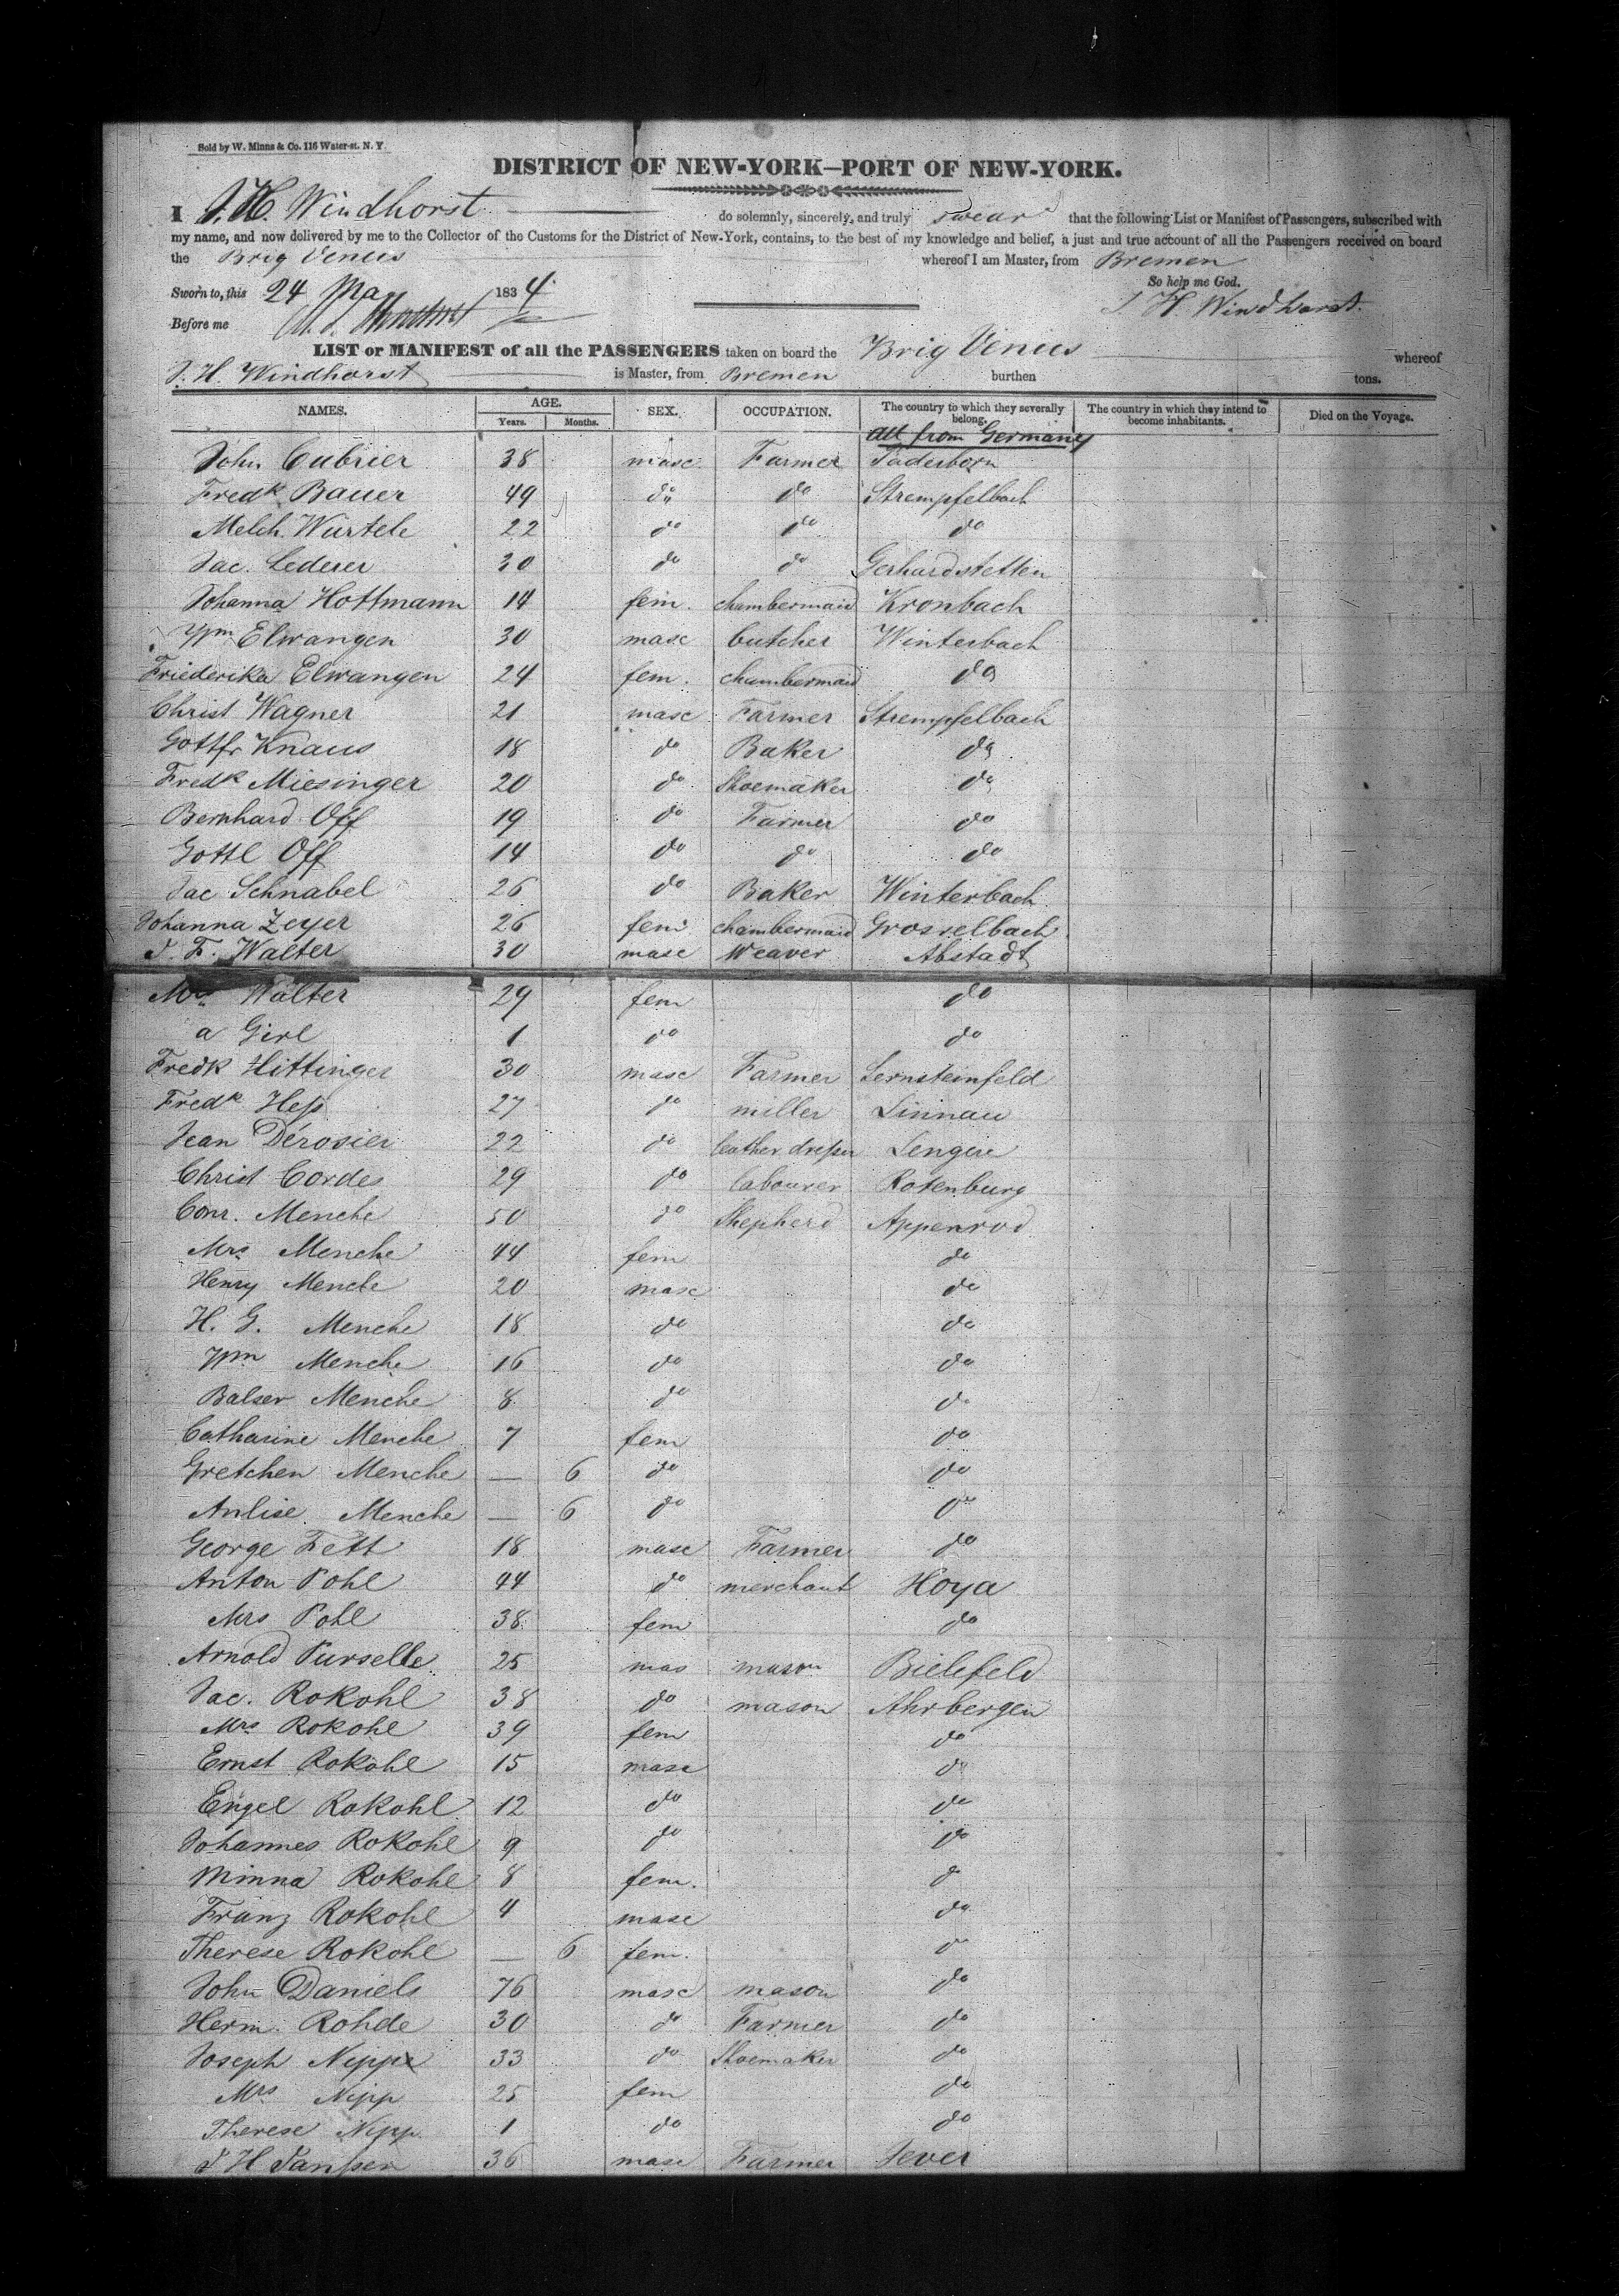 Sold by W. Minns & Co. 116 Water-st. N. Y.
DISTRICT OF NEW-YORK—PORT OF NEW-YORK.
I J. H. Windhorst do solemnly, sincerely, and truly swear that the following List or Manifest of Passengers, subscribed with
my name, and now delivered by me to the Collector of the Customs for the District of New-York, contains, to the best of my knowledge and belief, a just and true account of all the Passengers received on board
the Brig Venus whereof I am Master, from Bremen
So help me God.
Sworn to, this 24 May 1834
J. H. Windhorst.
Before me
LIST or MANIFEST of all the PASSENGERS taken on board the Brig Venus whereof
J. H. Windhorst is Master, from Bremen burthen tons.
NAMES. AGE. Years. Months. SEX. OCCUPATION. The country to which they severally belong. The country in which they intend to become inhabitants. Died on the Voyage.
All from Germany
John Cubrier 38 masc Farmer Paderborn
Fredk Bauer 49 do do Strempfelbach
Melch. Wurtele 22 do do do
Jac. Lederer 30 do do Gerhardstetten
Johanna Hottmann 14 fem. chambermaid Kronbach
Wm Elwangen 30 masc butcher Winterbach
Friederika Elwangen 24 fem. chambermaid do
Christ Wagner 21 masc Farmer Strempfelbach
Gottfr Knaus 18 do Baker do
Fredk Miesinger 20 do Shoemaker do
Bernhard Off 19 do Farmer do
Gottl Off 14 do do do
Jac Schnabel 26 do Baker Winterbach
Johanna Zeyer 26 fem chambermaid Grosselbach
J. F. Walter 30 masc Weaver Abstadt
Mrs Walter 29 fem do
a Girl 1 do do
Fredk Hittinger 30 masc Farmer Lernsteinfeld
Fredk Heß 27 do miller Linnau
Jean Dérosier 22 do leather dreßer Lengere
Christ Cordes 29 do labourer Rotenburg
Conr. Menche 50 do Shepherd Appenrod
Mrs Menche 44 fem do
Henry Menche 20 masc do
H. G. Menche 18 do do
Wm Menche 16 do do
Balser Menche 8 do do
Catharine Menche 7 fem do
Gretchen Menche — 6 do do
Anlise Menche — 6 do do
George Fett 18 masc Farmer do
Anton Pohl 44 do merchant Hoya
Mrs Pohl 38 fem do
Arnold Purselle 25 mas mason Bielefeld
Jac. Rokohl 38 do mason Ahrbergen
Mrs Rokohl 39 fem do
Ernst Rokohl 15 masc do
Engel Rokohl 12 do do
Johannes Rokohl 9 do do
Minna Rokohl 8 fem. do
Franz Rokohl 4 masc do
Therese Rokohl — 6 fem. do
John Daniels 76 masc mason do
Herm. Rohde 30 do Farmer do
Joseph Nipp 33 do Shoemaker do
Mrs Nipp 25 fem do
Therese Nipp 1 do do
J H Janßen 36 masc Farmer Jever